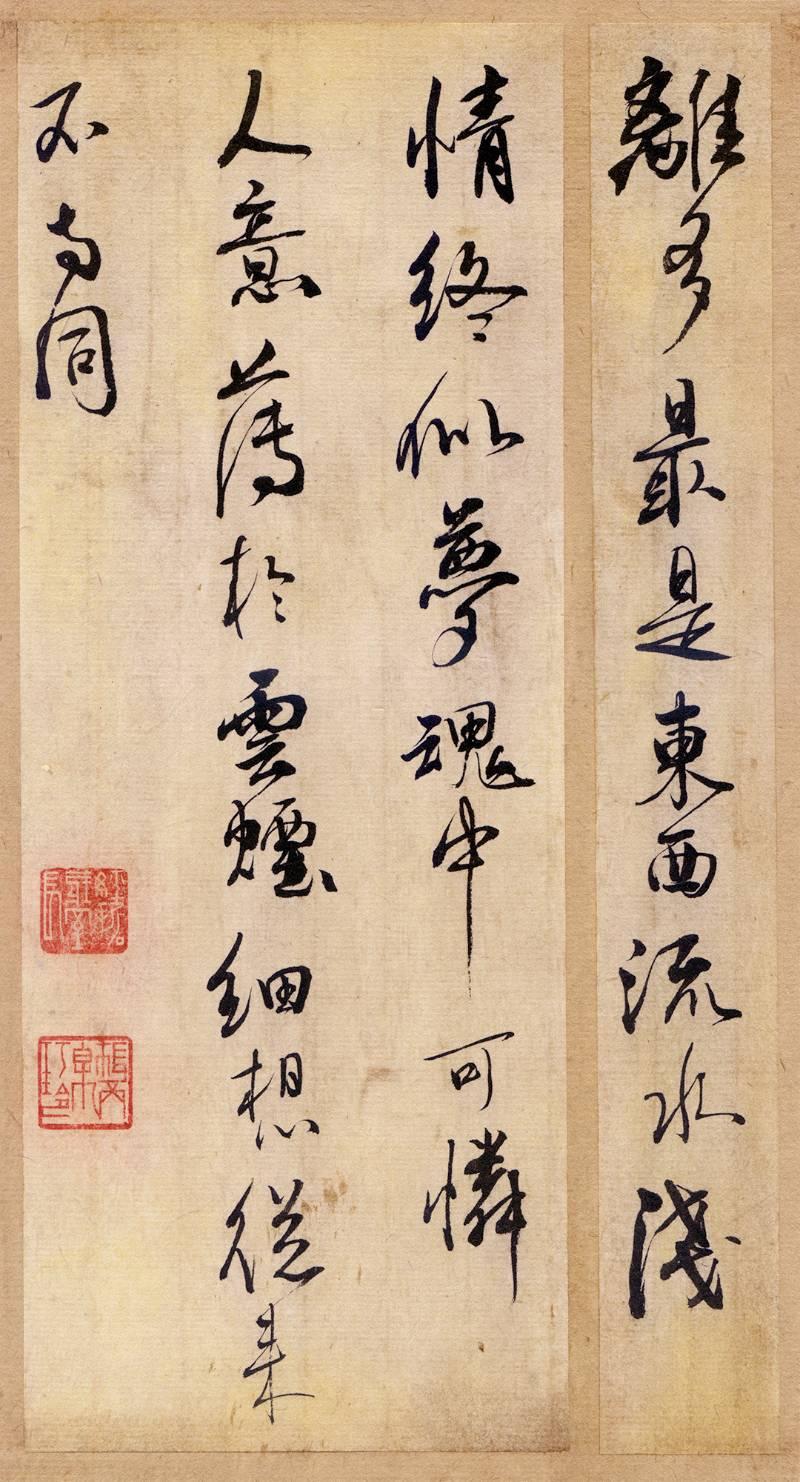 離多最是東西流水淺
情終似夢魂中可憐
人意薄於雲煙細想從来
不与同